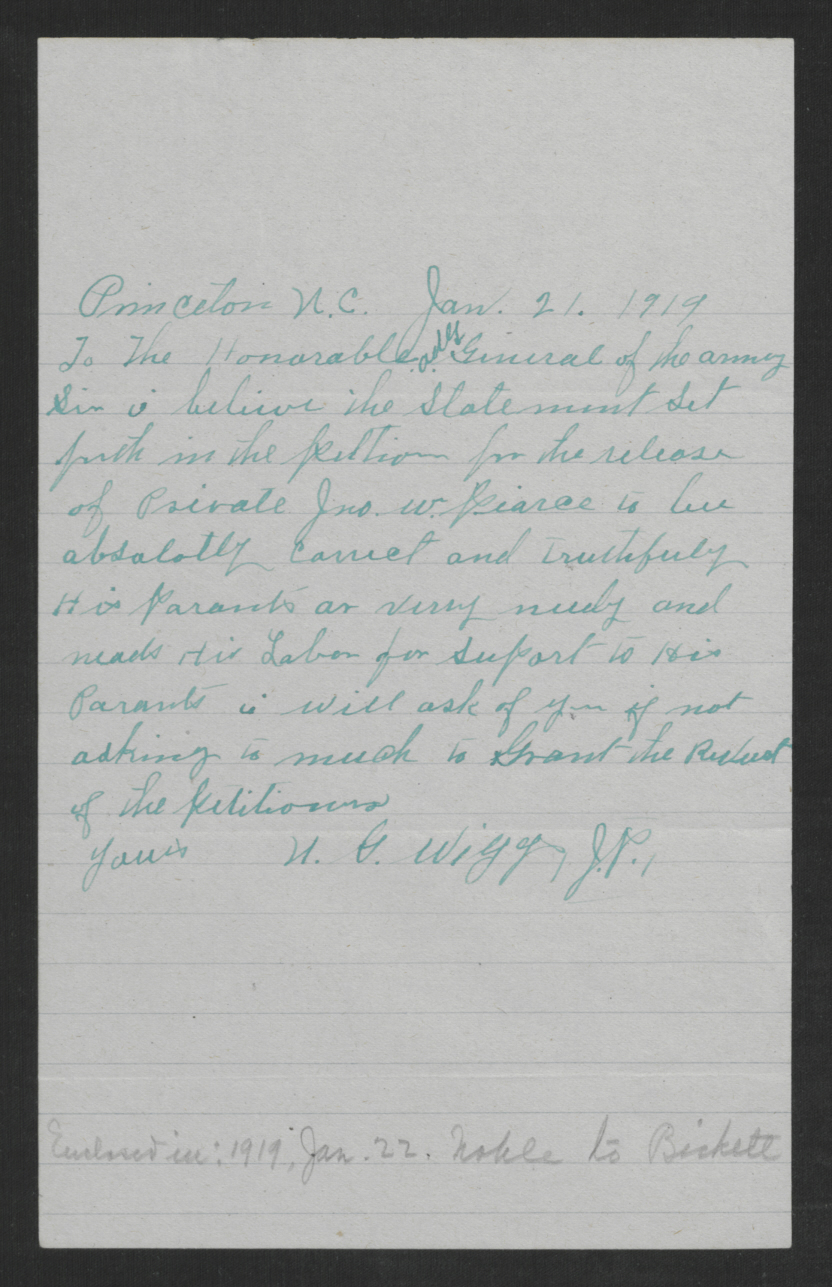 Princeton N.C. Jan. 21. 1919
To The Honorable adj General of the army
Sir i believe the Statement Set
forth in the petition for the release
of Private Jno. W. Pearce to be
absalotly Correct and truthfuly
His Parants ar verry needy and
neads His Labor for Suport to His
Parants i will ask of you if not
asking to much to Grant the Request
of the petitioners
yours U. G. Wiggs, J.P.,
Enclosed in: 1919, Jan. 22. Noble to Bickett